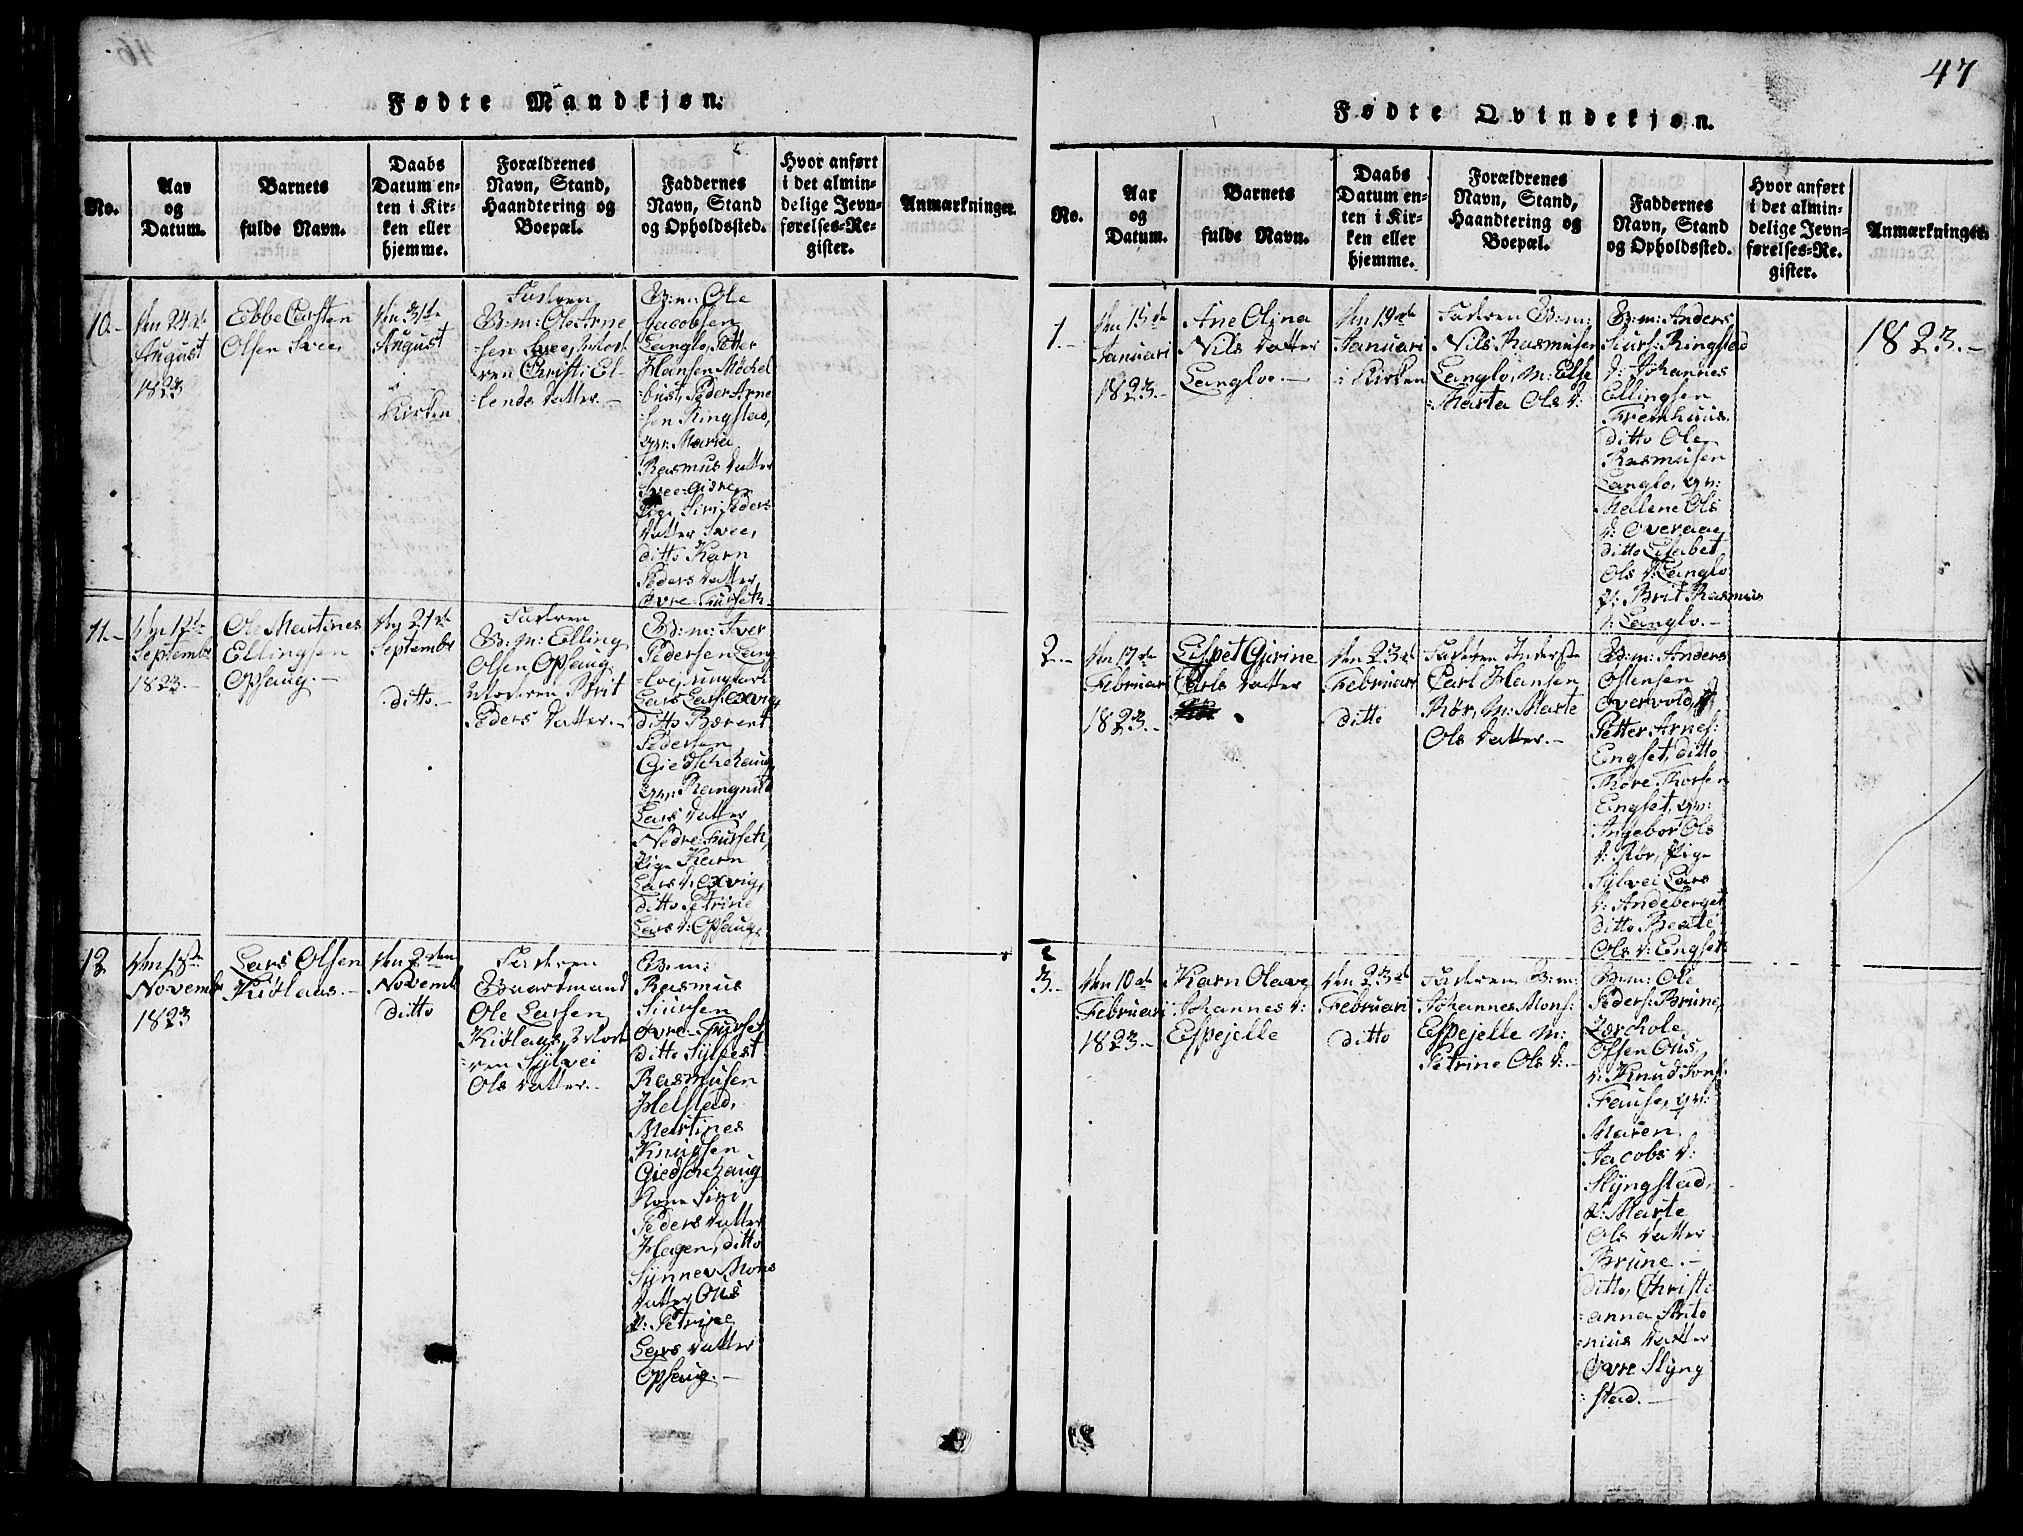 47
Fødte Mandkjøn.
No.
Aar
og
Datum.
Barnets
fulde Navn.
Daabs
Datum en-
ten i Kir-
ken eller
hjemme.
Forældrenes
Navn, Stand,
Haandtering og
Boepæl.
Faddernes
Navn, Stand
og Opholdssted.
Hvor anført
i det almin-
delige Jevn-
førelses-Re-
gister.
Anmærkninger.
10.-
den 24de
August
1823
Ebbe Carsten
Olsen Svee,
den 31te
August
i
Kirken
Faderen
B:m: Ole Arne
sen Svee, Mod
ren Christi El-
lends datter.-
B:m: Ole
Jacobsen
Langlo, Petter
Hansen Möchel
bust, Peder Arne
sen Ringstad,
gm: Maria
Rasmus datter
Svee-Gisre,
Pige Siri Peders
datter Svee,
ditto Karn
Peders datter
övre-Furseth.
11.-
Septembr
1823.-
Ole Martines
Ellingsen
Opsaug.-
den 21de
Septembr
ditto.-
Faderen
B:m: Elling
Olsen Opsaug
Moderen Brit
Peders datter.-
B:m: Iver
Pedersen Lang
loe, ungkarl
Lars Lars: Exvig,
ditto Bærent
Pedersen
Giedschehaug
gm: Rangnild
Lars datter
Nedre-Furseth,
Pige Karn
Lars d: Exvig,
ditto Petrine
Lars d: Opsaug,
12
den 18de
Novemb
1823
Lars Olsen
Kiølaas.-
den 2den
Novemb
ditto
Faderen
Boardmand
Ole Larsen
Kiølaas, Mod
ren Sÿlvei
Ols datter.-
B:m:
Rasmus
Siursen
övre-Furset
ditto Sÿlfest
Rasmusen
Helstad,
Martines
Knudsen
Giedschehaug
Kone Siri
Peders datter
Hagen, ditto
Sÿnnev Mons
datter, Ous
P: Petrine
Lars datter
Opsaug.-
Fødte Qvindekjøn.
No.
Aar
og
Datum.
Barnets
fulde Navn.
Daabs
Datum en-
ten i Kir-
ken eller
hjemme.
Forældrenes
Navn, Stand,
Haandtering og
Boepæl.
Faddernes
Navn, Stand
og Opholdssted.
Hvor anført
i det almin-
delige Jevn-
førelses-Re-
gister.
Anmærkninger.
1.-
den 15de
Januari
1823.-
Ane Olina
Nils datter
Langlo.-
den 19de
Januari
i Kirken
Faderen B:m:
Nils Rasmusen
Langlo, M: Else
Marta Ols d:
B:m: Anders
Siurs: Ringstad
d: Johannes
Ellingsen
Fremhuus
ditto Ole
Rasmusen
Langlo, gm:
Mallene Ols
d: Overaae
ditto Lisabet
Ols d: Langlo
P: Brit Rasmus
d: Langlo.-
1823.-
2.-
den 17de
Februari
1823.-
Lispet Gurine
Carls datter
den 23de
Februari
ditto
Faderen Inderste
Carl Hansen
Rør, M: Marte
Ols datter.-
B:m: Anders
Ostensen
Overvold,
Petter Arnes:
Engset, ditto
Thore Thorsen
Engset, gm:
Ingebor Ols
d: Rør, Pige
Sÿlvei Lars
d: Andeberget
ditto Beate
Ols d: Engset
3.-
den 10de
Februari
1823.-
Karn Olave
Johannes d:
Espejelle
den 23de
Februari
ditto
Faderen B:m:
Johannes Mons:
Espejelle M:
Petrine Ols d:-
B:m: Ole
Peders: Brune,
Olsen Ous,
d: Knud Jons:
Fause, gm:
Maren
Jacobs d:
Slÿngstad,
P: Marte
Ols datter
Brune.-
ditto, Christi
anna Anto
nius datter
Övre Slÿng
stad.-